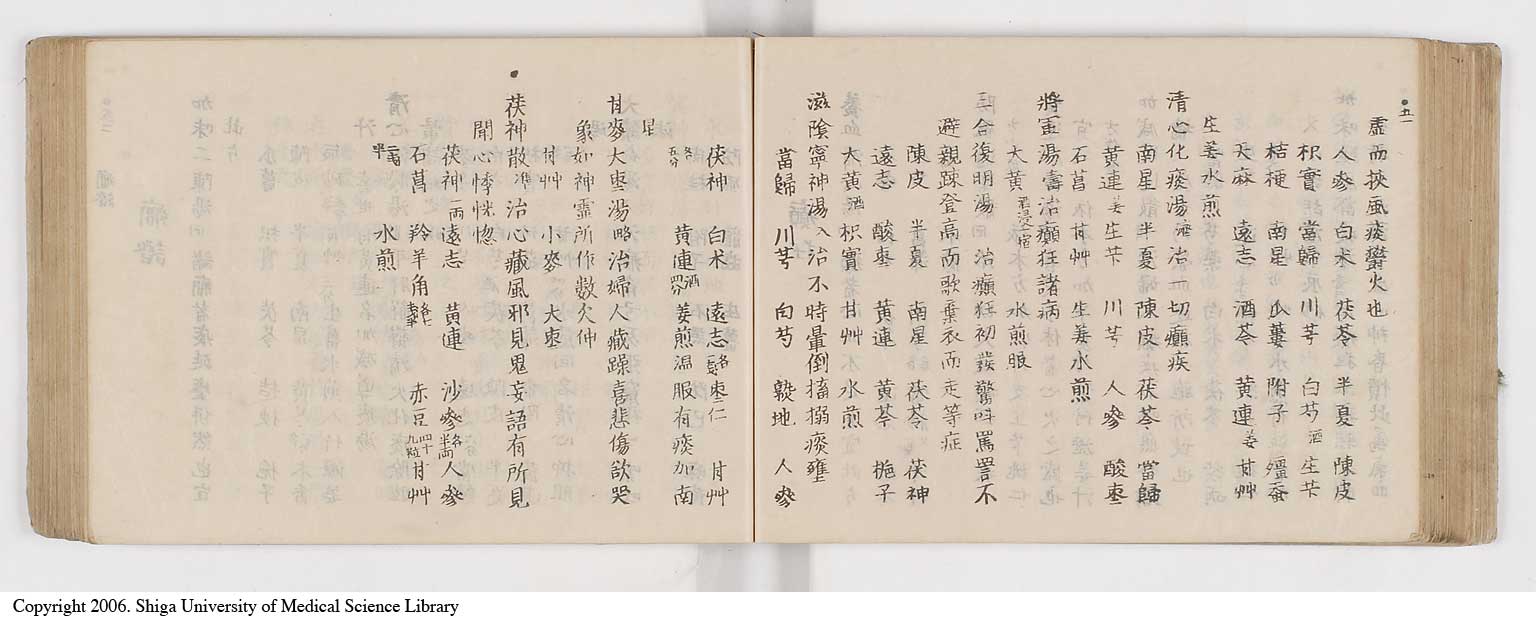 五一
虚而挾風痰鬱火也
人參 白朮 茯苓 半夏 陳皮
枳實 當歸 川芎 白芍酒 生苄
桔梗 南星 瓜蔞 附子 殭蚕
天麻 遠志 酒苓 黃連姜 甘艸
生姜水煎
清心化痰湯 治一切癲疾
南星 半夏 陳皮 茯苓 當歸
黃連姜 生苄 川芎 人參 酸枣
石菖 甘艸 生姜水煎
將軍湯壽 治癲狂諸病
大黃酒浸一宿 水煎服
三合復明湯回 治癲狂初發驚叫罵詈不
避親踈登高而歌棄衣而走等症
陳皮 半夏 南星 茯苓 茯神
遠志 酸枣 黃連 黃芩 梔子
大黃酒 枳實 甘艸 水煎
滋陰寧神湯入 治不時暈倒搐搦痰壅
當歸 川芎 白芍 熟地 人參
茯神 白朮 遠志 枣仁 甘艸
各五分 黃連酒四分 姜煎温服有痰加南
星
甘麥大枣湯略 治婦人藏躁喜悲傷欲哭
象如神靈所作數欠伸
甘艸 小麥 大枣
茯神散準 治心藏風邪見鬼妄語有所見
聞心悸恍惚
茯神一兩 遠志 黃連 沙參各半兩 人參
石菖 羚羊角 赤豆四十九粒 甘艸
水煎
Copyright 2006. Shiga University of Medical Science Library